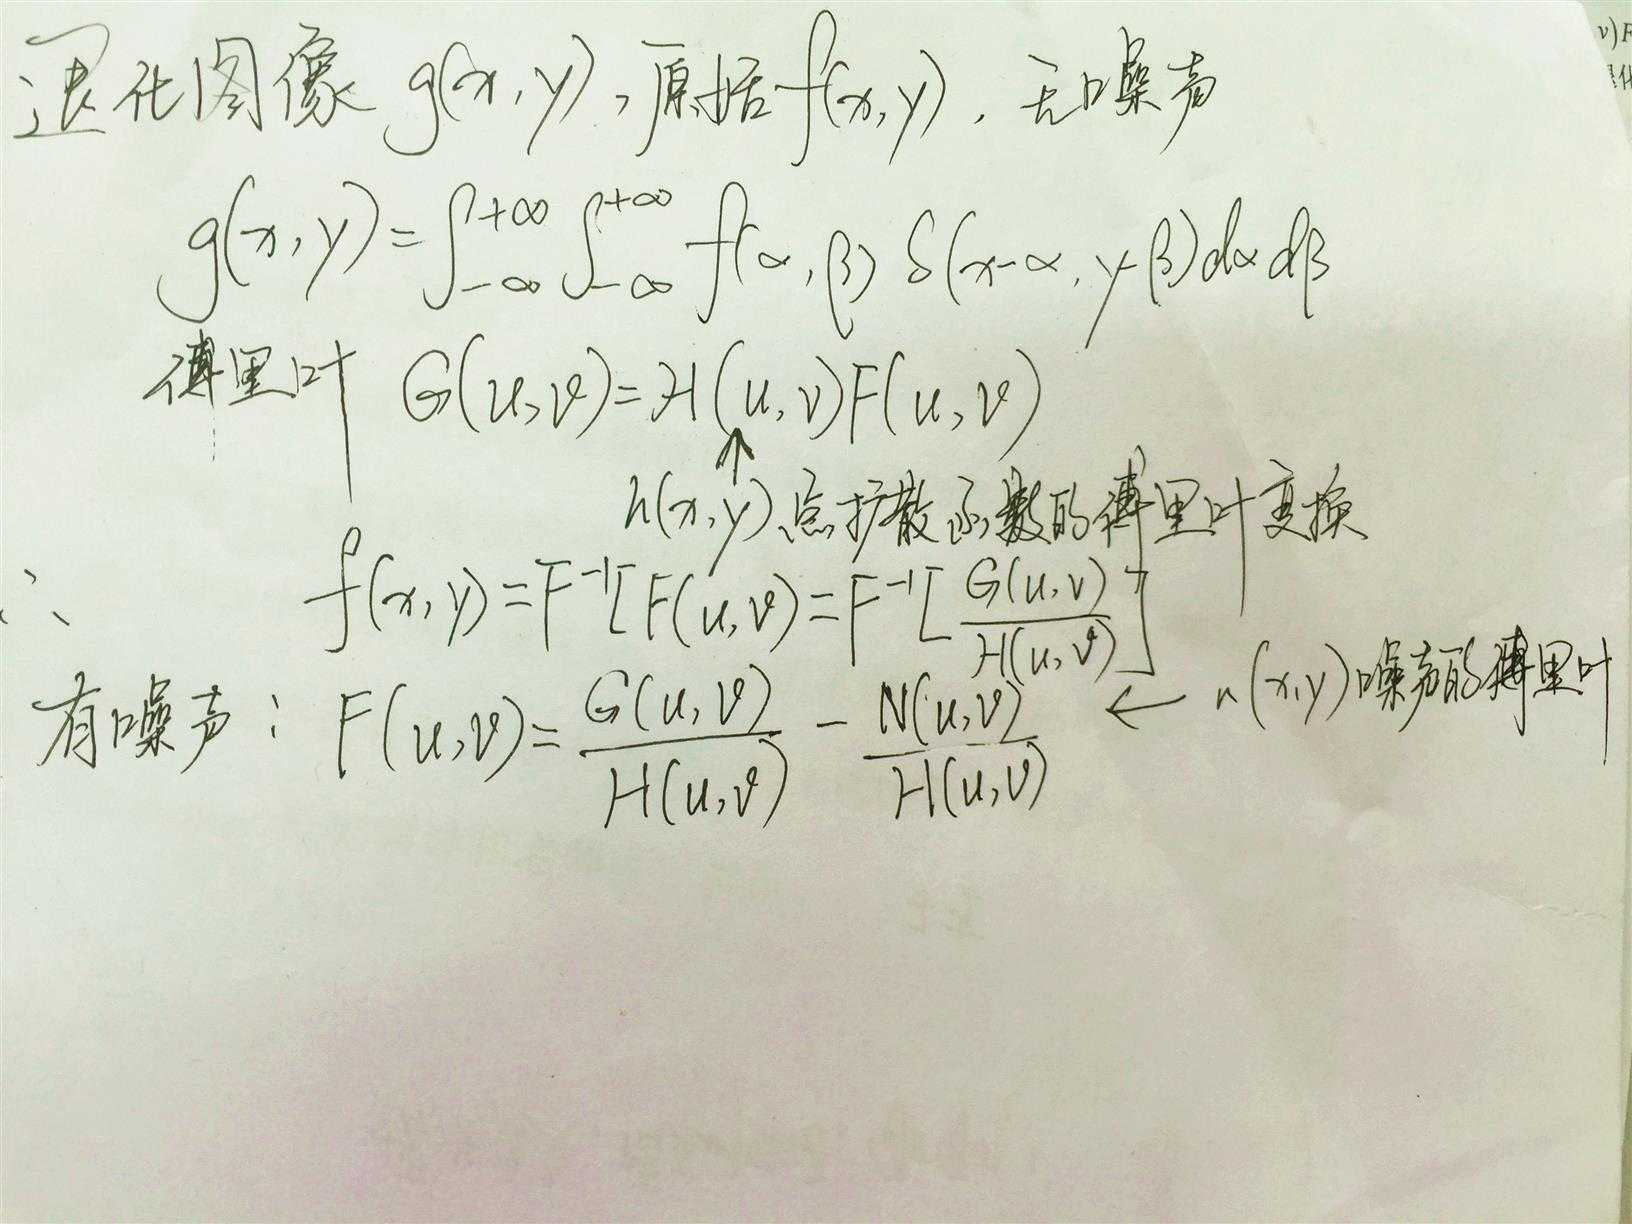 退化图像 g(x,y), 原括 f(x,y), 无噪声
g(x,y)=∫_{-∞}^{+∞}∫_{-∞}^{+∞} f(α,β) δ(x-α,y-β)dαdβ
傅里叶 G(u,v)=H(u,v)F(u,v)
↑
h(x,y)点扩散函数的傅里叶变换
∴ f(x,y)=F⁻¹[F(u,v)=F⁻¹[G(u,v)/H(u,v)]
有噪声: F(u,v)=G(u,v)/H(u,v) - N(u,v)/H(u,v) ← n(x,y)噪声的傅里叶